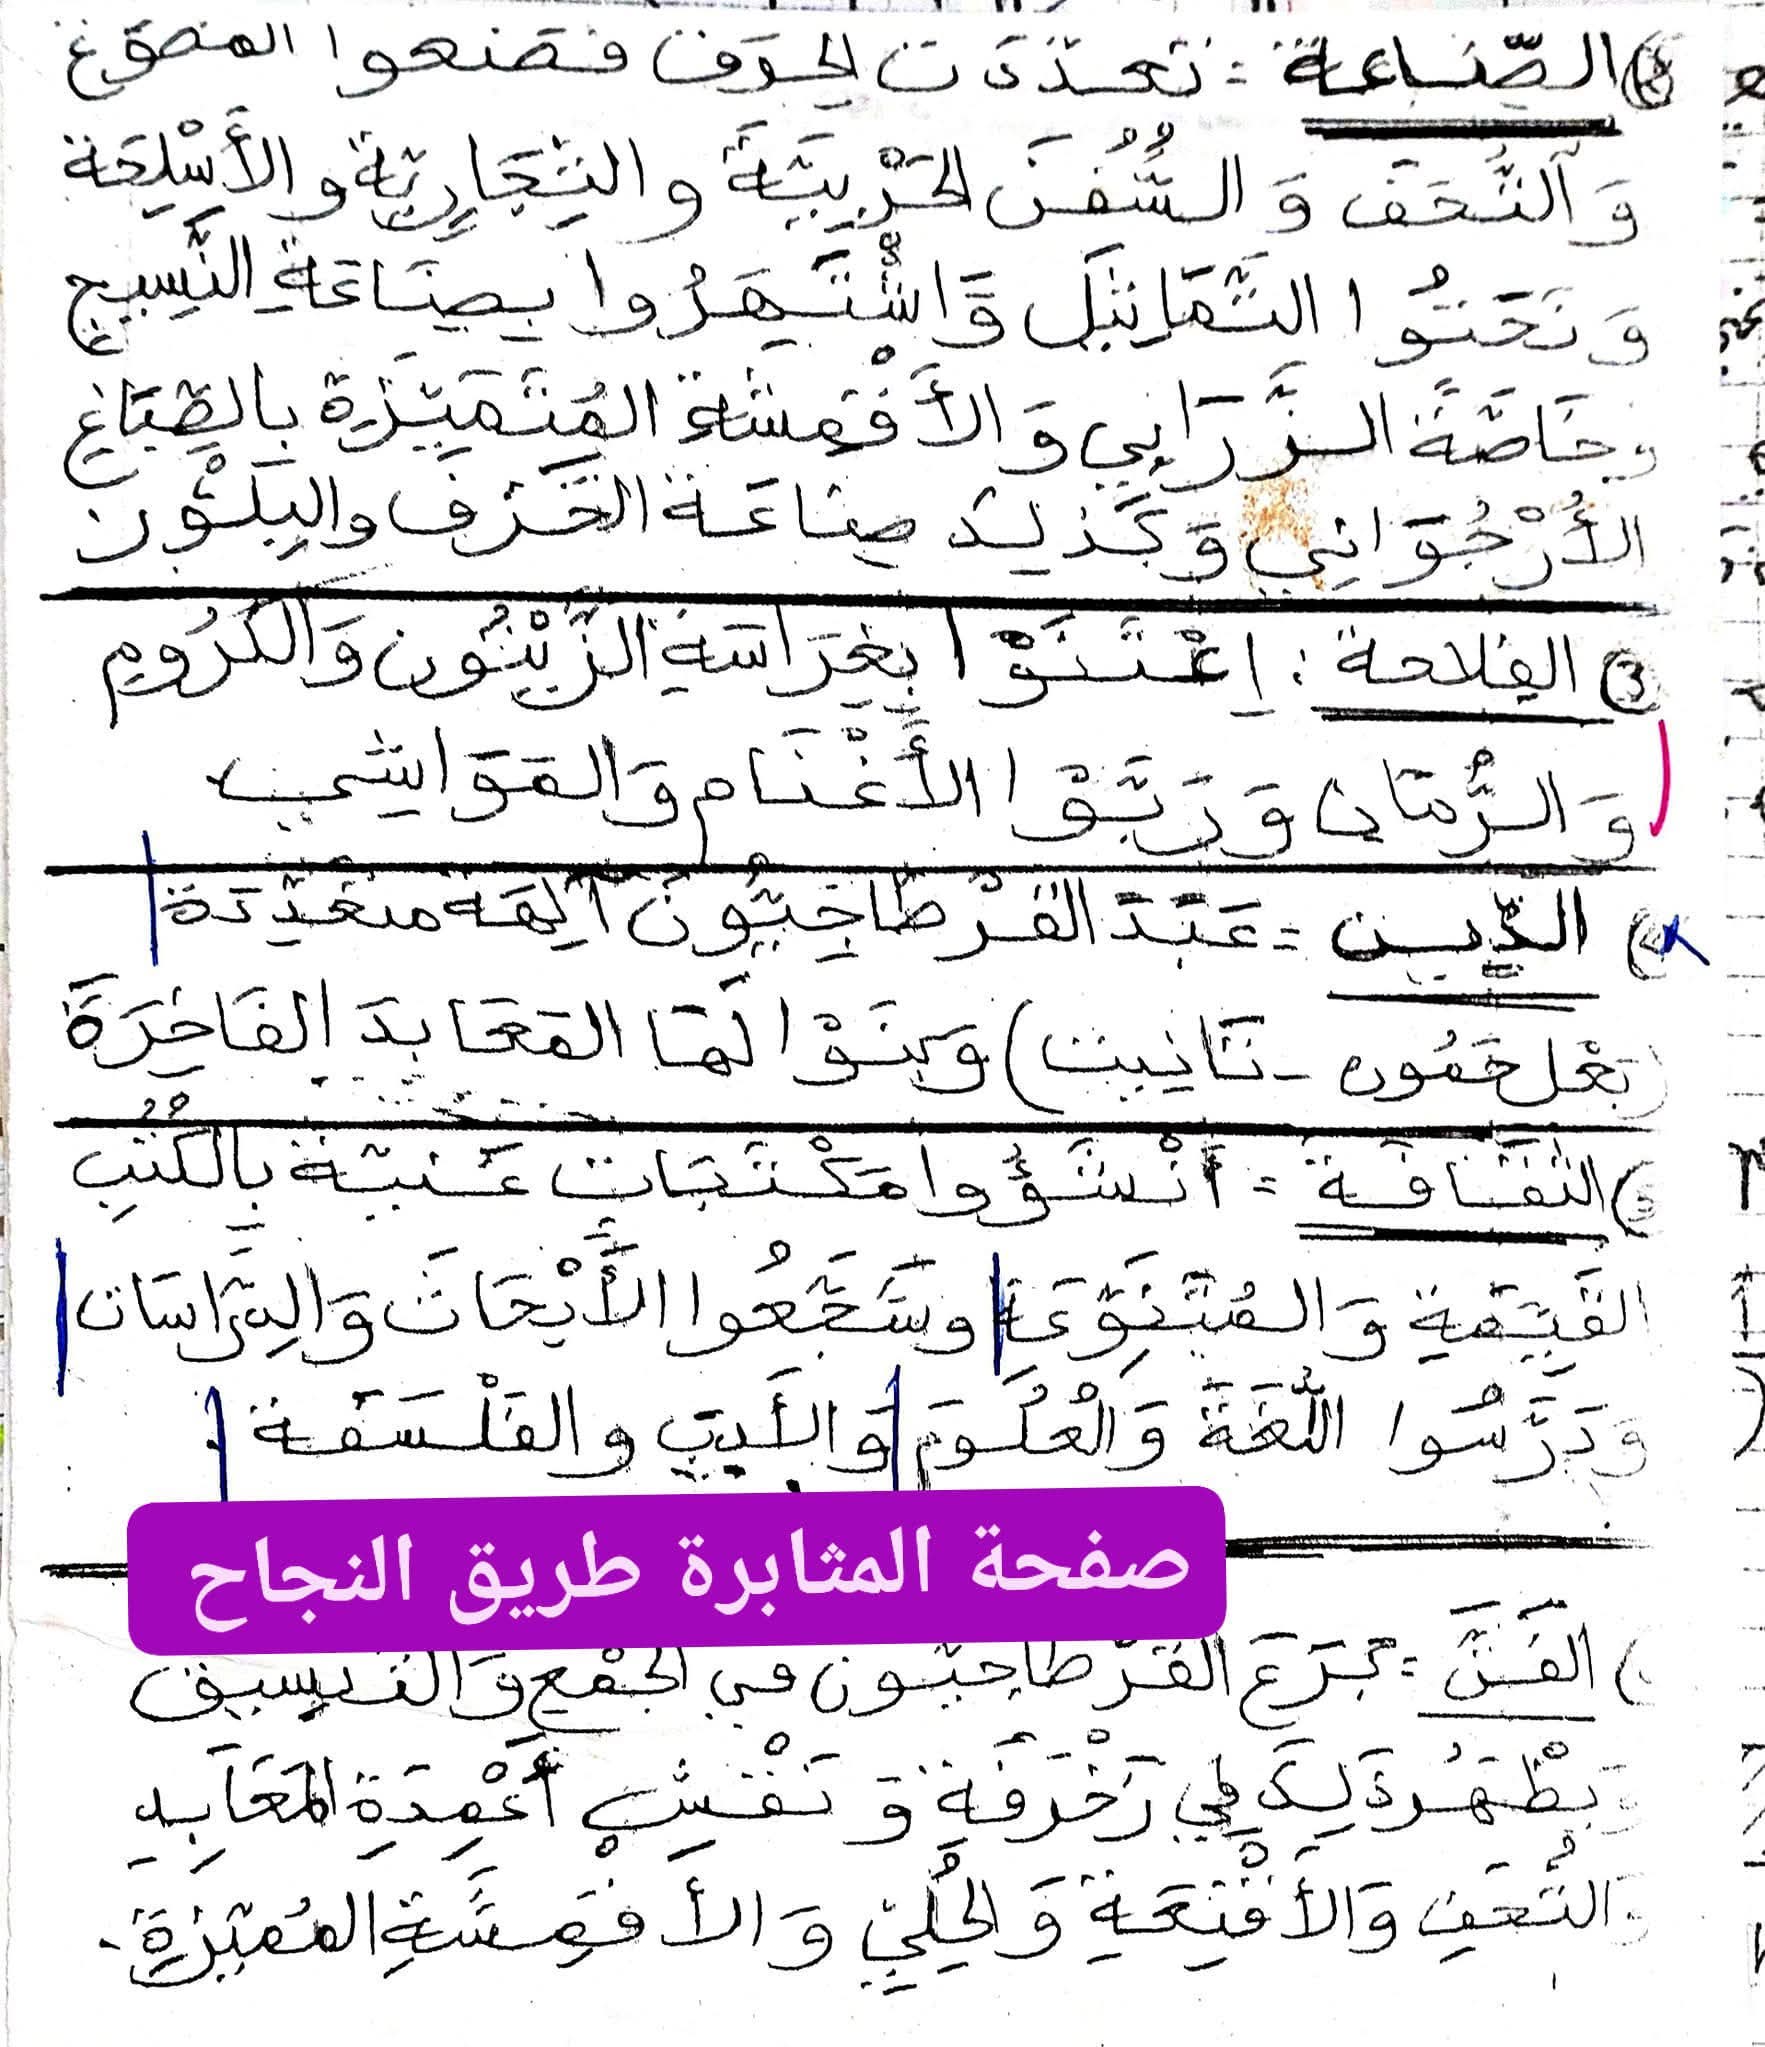 2) الصّناعة : تعدّدت الحرف فصنعوا المصوّغ
وَ التُّحَفَ وَ السُّفُنَ الحَرْبِيَّةَ و التِّجَارِيّة و الأَسْلِحَة
وَ نَحَتُوا التَّمَاثِيلَ وَ اشْتَهَرُوا بِصِنَاعَةِ النَّسِيج
وخَاصَّةً الزَّرَابِي وَ الأَقْمِشَة المُتَمَيِّزَة بِالصِّبَاغِ
الأُرْجُوَانِي وَ كَذلِكَ صِنَاعَة الخَزَف والبِلَّوْر
3) الفِلاحة : اِعْتَنَوْا بِغِرَاسَةِ الزَّيْتُون وَالكُرُوم
وَ الرُّمّان وَ رَبَّوْا الأَغْنَام وَ المَوَاشِي
الدّين : عَبَدَ القَرْطَاجِيُّونَ آلِهَة متعَدِّدَة
(بَعْل حَمُون - تَانِيت) وَ بَنَوْا لَهَا المَعَابِدَ الفَاخِرَةَ
الثّقَافَة : أَنْشَؤُوا مَكْتَبَات غَنِيّة بِالكُتُبِ
القَيِّمَةِ وَ المُتَنَوِّعَةِ وشَجَّعُوا الأَبْحَاثَ وَ الدِّرَاسَات
وَ دَرَّسُوا اللُّغَةَ وَ العُلُومَ وَ الأَدَبَ و الفَلْسَفَة .
صفحة المثابرة طريق النجاح
) الفَنّ : بَرَعَ القَرْطَاجِيّون في الجَمْع وَ التَّنْسِيق
وَ يَظْهَرُ ذَلِكَ في زَخْرَفَةِ وَ نَقْشِ أَعْمِدَةِ المَعَابِدِ
وَ التُّحَفِ وَ الأَقْنِعَةِ وَ الحُلِيّ وَ الأَقْمِشَةِ المُمَيَّزَةِ .